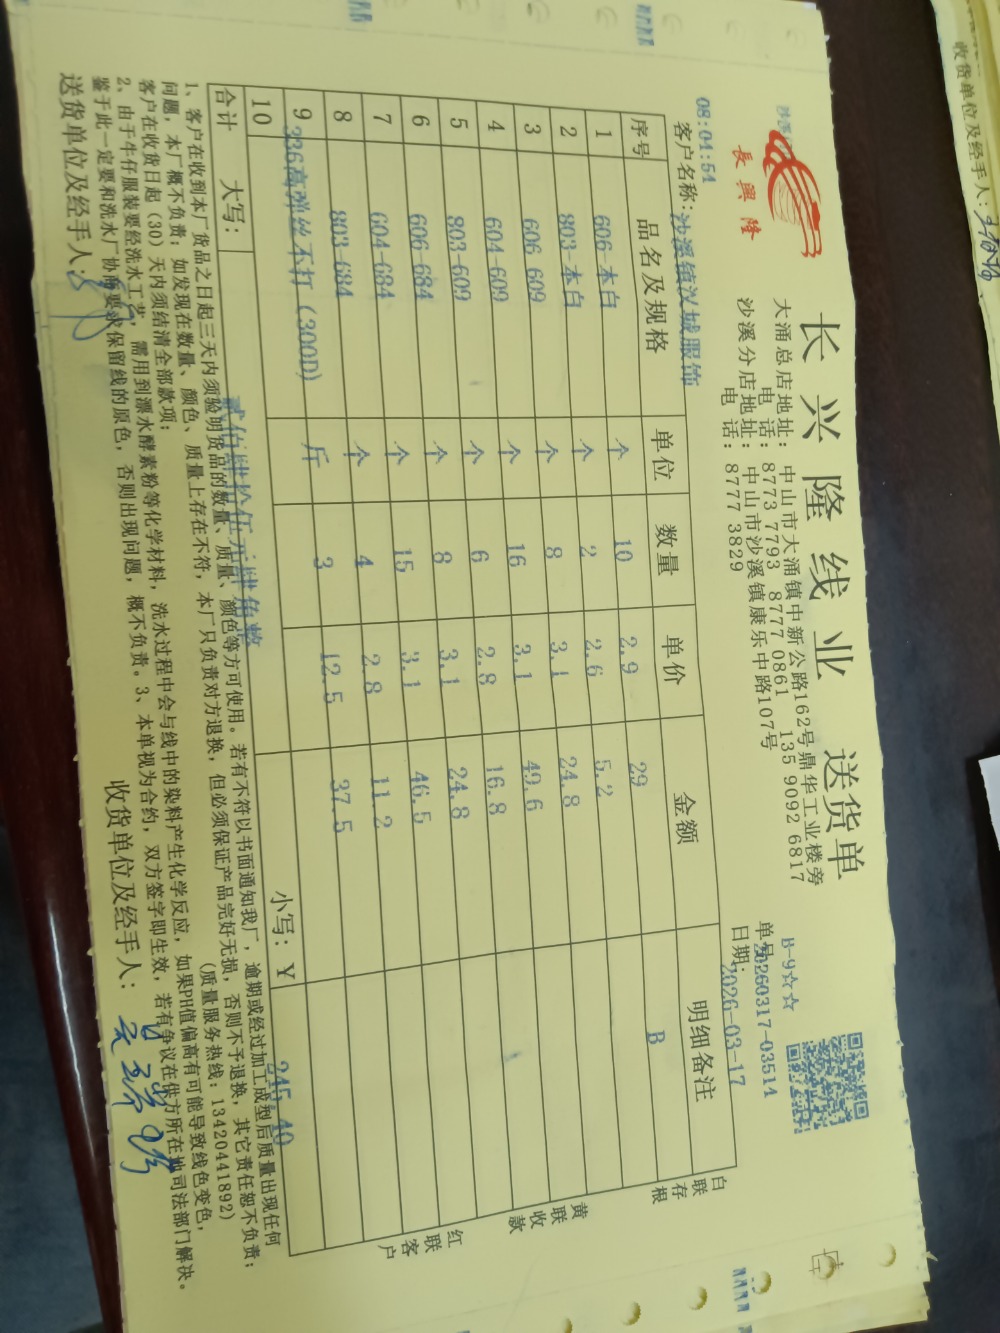 長興隆
长兴隆线业 送货单
大涌总店地址：中山市大涌镇中新公路162号鼎华工业楼旁
电 话：8773 7793 8777 0861 135 9092 6817
沙溪分店地址：中山市沙溪镇康乐中路107号
电 话：8777 3829
B-9☆☆
单号：20260317-03514
日期：2026-03-17
08:04:54
客户名称：沙溪镇汉城服饰
序号 品名及规格 单位 数量 单价 金额 明细备注
1 606-本白 个 10 2.9 29 B
2 803-本白 个 2 2.6 5.2
3 606 609 个 8 3.1 24.8
4 604-609 个 16 3.1 49.6
5 803-609 个 6 2.8 16.8
6 606-684 个 8 3.1 24.8
7 604-684 个 15 3.1 46.5
8 803-684 个 4 2.8 11.2
9 336高弹丝不打（300D） 斤 3 12.5 37.5
10
合计 大写：贰佰肆拾伍元肆角整 小写：Y 245.40
白联存根
黄联收款
红联客户
1、客户在收到本厂货品之日起三天内须验明货品的数量、质量、颜色等方可使用。若有不符以书面通知我厂，逾期或经过加工成型后质量出现任何
问题，本厂概不负责；如发现在数量、颜色、质量上存在不符，本厂只负责对方退换，但必须保证产品完好无损，否则不予退换，其它责任恕不负责；
客户在收货日起（30）天内须结清全部款项； （质量服务热线：13420441892）
2、由于牛仔服装要经洗水工艺，需用到漂水酵素粉等化学材料，洗水过程中会与线中的染料产生化学反应，如果PH值偏高有可能导致线色变色，
鉴于此一定要和洗水厂协商要求保留线的原色，否则出现问题，概不负责。3、本单视为合约，双方签字即生效，若有争议在供方所在地司法部门解决。
送货单位及经手人： 收货单位及经手人：
收货单位及经手人：